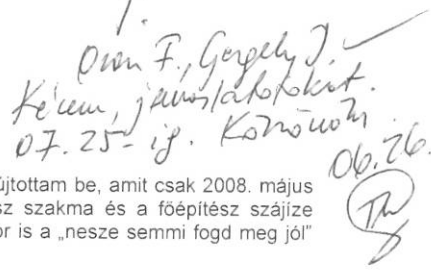 F., Gergely J.
Kérem, javaslatotokat.
07.25-ig. Köszönöm
06.26.
újtottam be, amit csak 2008. május
sz szakma és a főépítész szájíze
or is a „nesze semmi fogd meg jól”